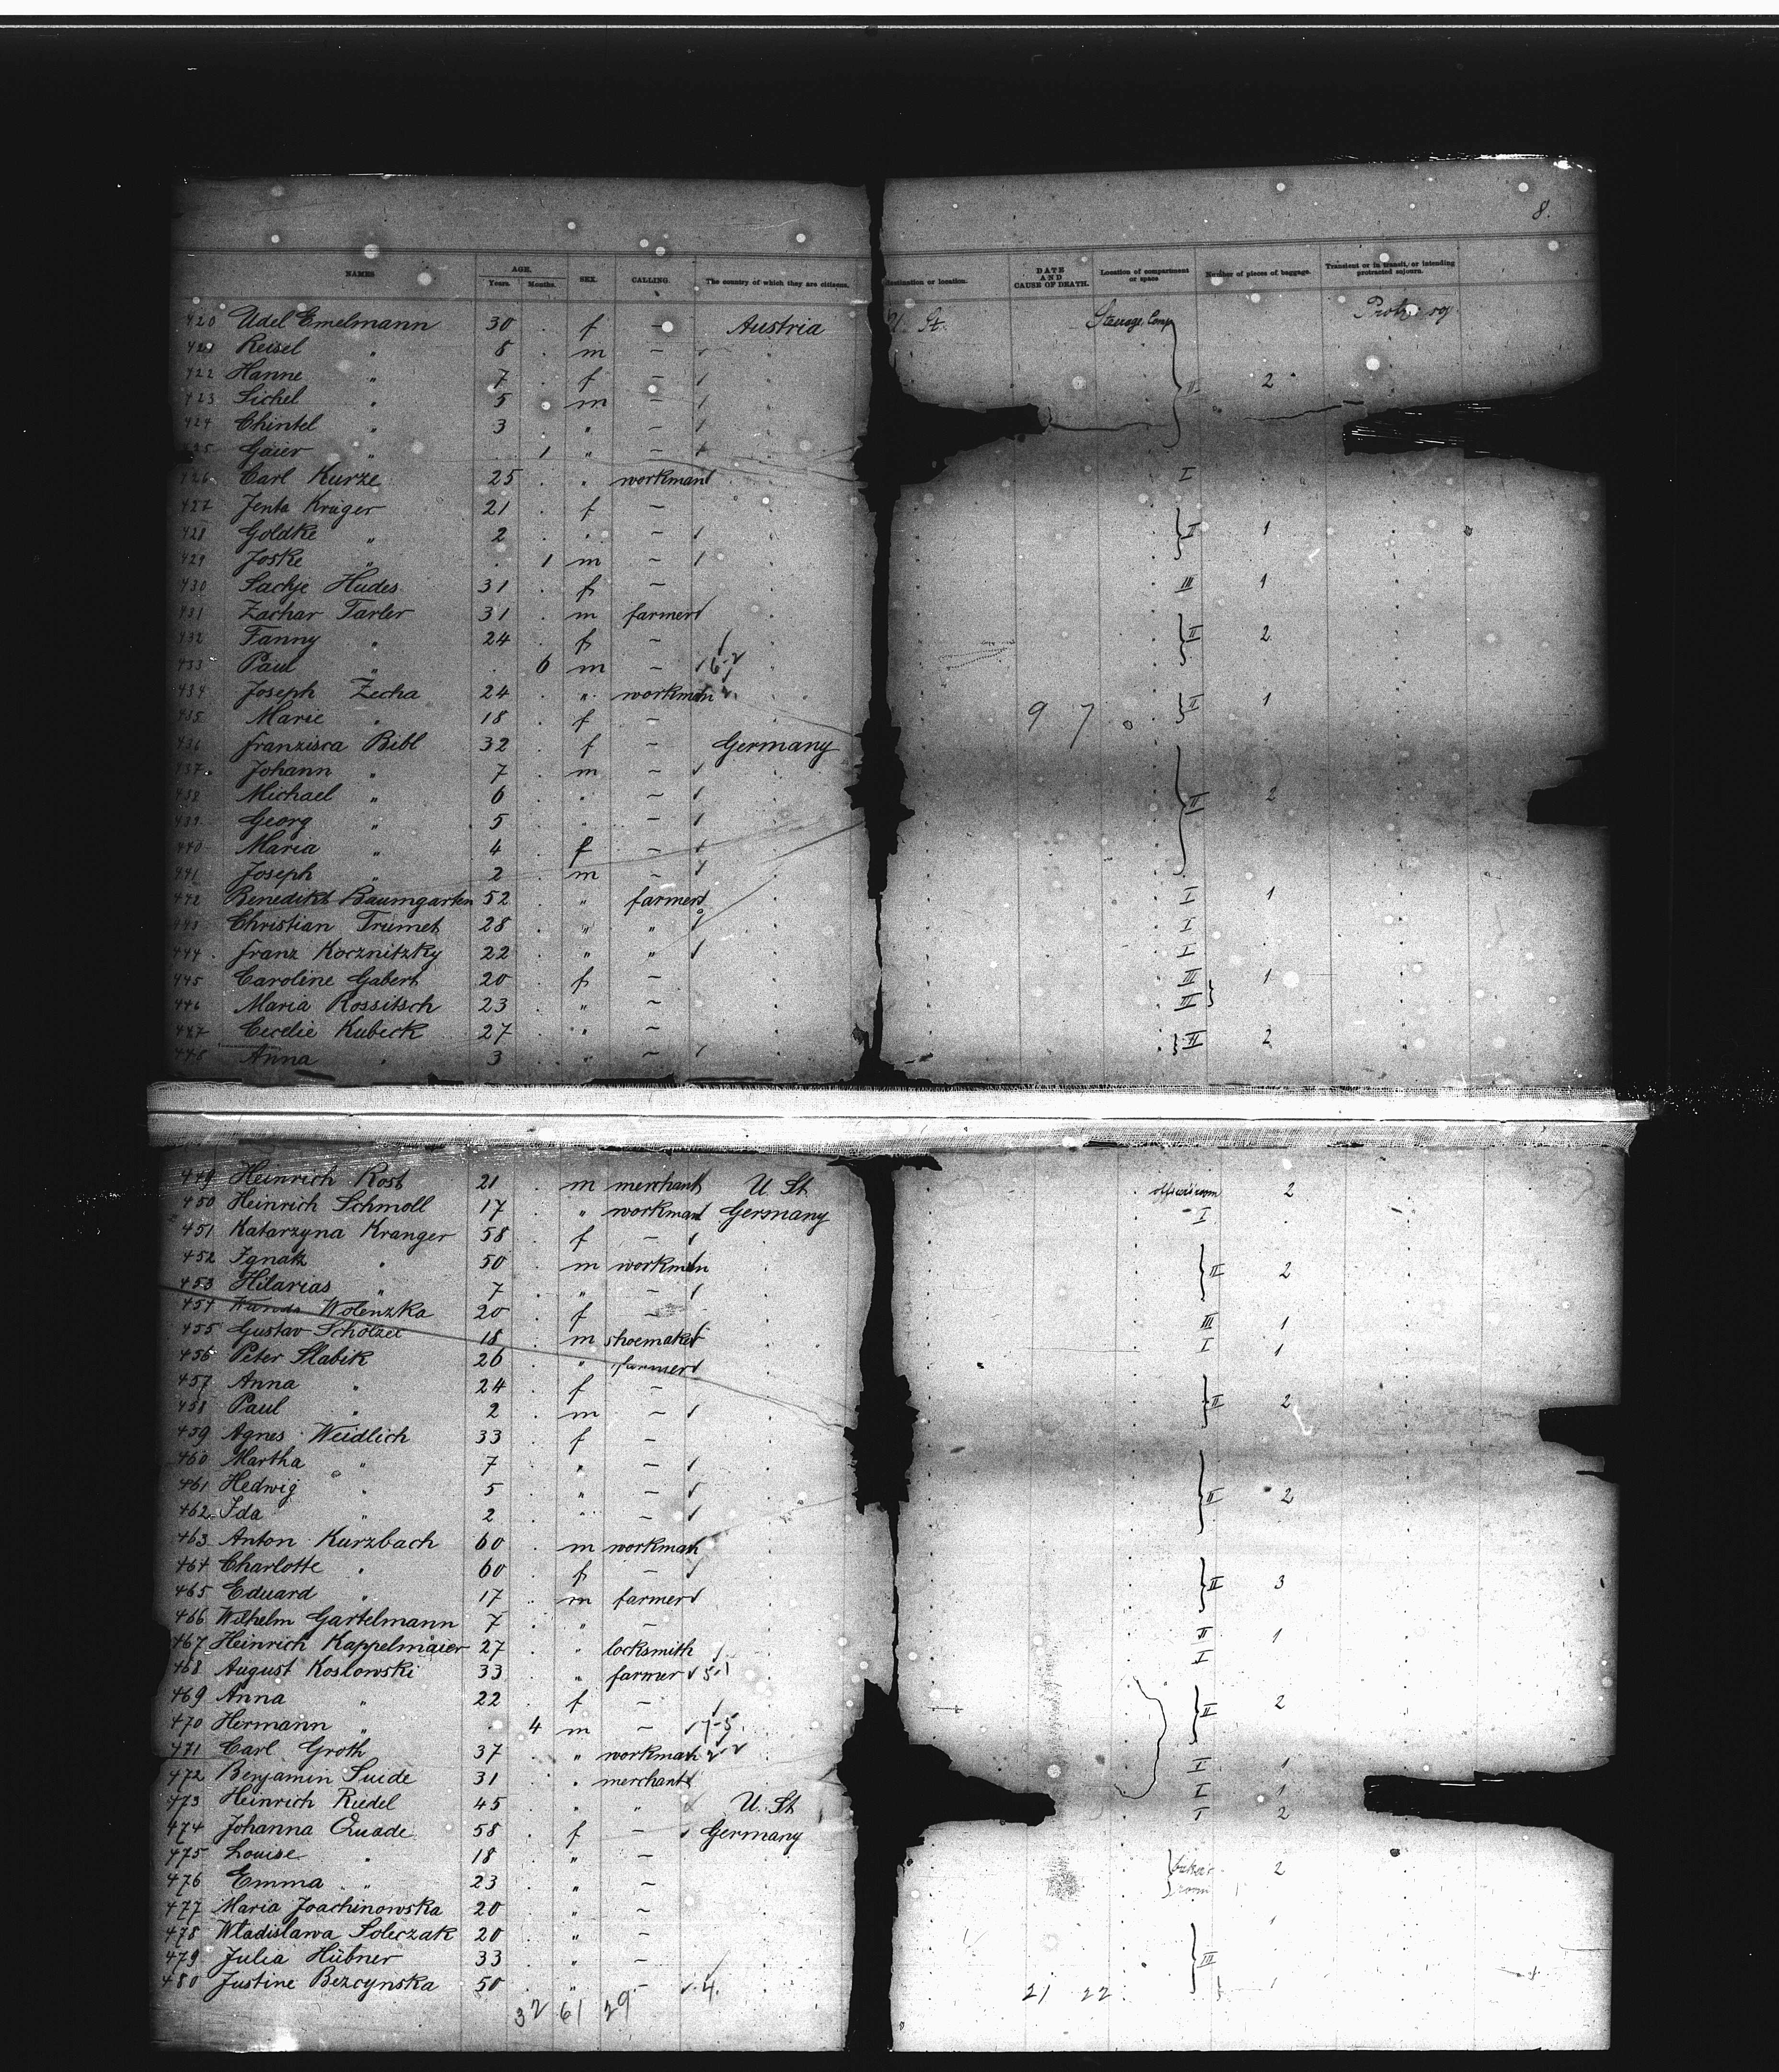 8.
NAMES AGE. Years. Months. SEX. CALLING. The country of which they are citizens. destination or location. DATE AND CAUSE OF DEATH. Location of compartment or space Number of pieces of baggage. Transient or in transit, or intending protracted sojourn.
420 Udel Emelmann 30 . f – Austria St. Steerage Comp
421 Reisel " 8 . m –
422 Hanne " 7 . f – II 2
423 Sichel " 5 . m –
424 Chintel " 3 . " –
425 Gaier " . 1 " –
426 Carl Kurze 25 . " workman I
427 Jenta Krüger 21 . f –
428 Goldke " 2 . " – II 1
429 Joske " . 1 m –
430 Sackje Hudes 31 . f – III 1
431 Zachar Tarler 31 . m farmer
432 Fanny " 24 . f – II 2
433 Paul " . 6 m –
434 Joseph Zecha 24 . " workman II 1
435 Marie " 18 . f – 9 7
436 Franzisca Bibl 32 . f – Germany
437 Johann " 7 . m –
438 Michael " 6 . " – II 2
439 Georg " 5 . " –
440 Maria " 4 . f –
441 Joseph " 2 . m –
442 Benedikt Baumgarten 52 . " farmer I 1
443 Christian Trumet 28 . " " I
444 Franz Kocznitzky 22 . " " I
445 Caroline Gabert 20 . f – III 1
446 Maria Rossitsch 23 . " – III
447 Cecelie Kubeck 27 . " – II 2
448 Anna " 3 . " –
449 Heinrich Rost 21 . m merchant U. St. officers room 2
450 Heinrich Schmoll 17 . " workman Germany I
451 Katarzyna Kranger 58 . f –
452 Ignatz " 50 . m workman II 2
453 Hilarias " 7 . " –
454 Wanda Wolenzka 20 . f – III 1
455 Gustav Scholzel 18 . m shoemaker I 1
456 Peter Slabik 26 . " farmer
457 Anna " 24 . f – II 2
458 Paul " 2 . m –
459 Agnes Weidlich 33 . f –
460 Martha " 7 . " –
461 Hedwig " 5 . " – II 2
462 Ida " 2 . " –
463 Anton Kurzbach 60 . m workman
464 Charlotte " 60 . f – II 3
465 Eduard " 17 . m farmer
466 Wilhelm Gartelmann 7 . " – II 1
467 Heinrich Kappelmaier 27 . " locksmith I
468 August Koslowski 33 . " farmer 5-1
469 Anna " 22 . f – II 2
470 Hermann " . 4 m – 7-5
471 Carl Groth 37 . " workman 2-2 I 1
472 Benjamin Suide 31 . " merchant I 1
473 Heinrich Riedel 45 . " " U. St. I 2
474 Johanna Quade 58 . f – Germany
475 Louise " 18 . " – room 2
476 Emma " 23 . " –
477 Maria Joachinowska 20 . " –
478 Wladislawa Soleczak 20 . " – 1
479 Julia Hübner 33 . " – III
480 Justine Bezcynska 50 . " – 4. 21 22 1
32 61 29